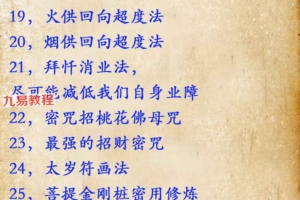 19，火供回向超度法
20，烟供回向超度法
21，拜忏消业法，
尽可能减低我们自身业障
九易教程
22，密咒招桃花佛母咒
23，最强的招财密咒
24，太岁符画法
25，菩提金刚桩密用修炼